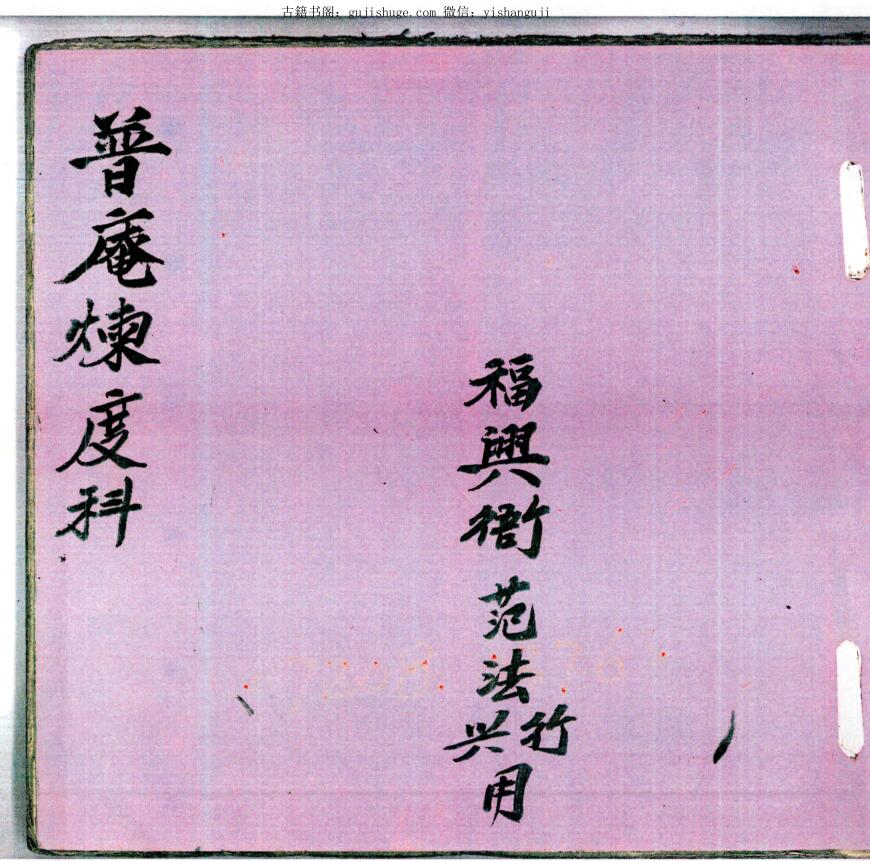 古籍书阁：gujishuge.com 微信：yishanguji
福興衙范法
竹兴
用
普庵煉度科